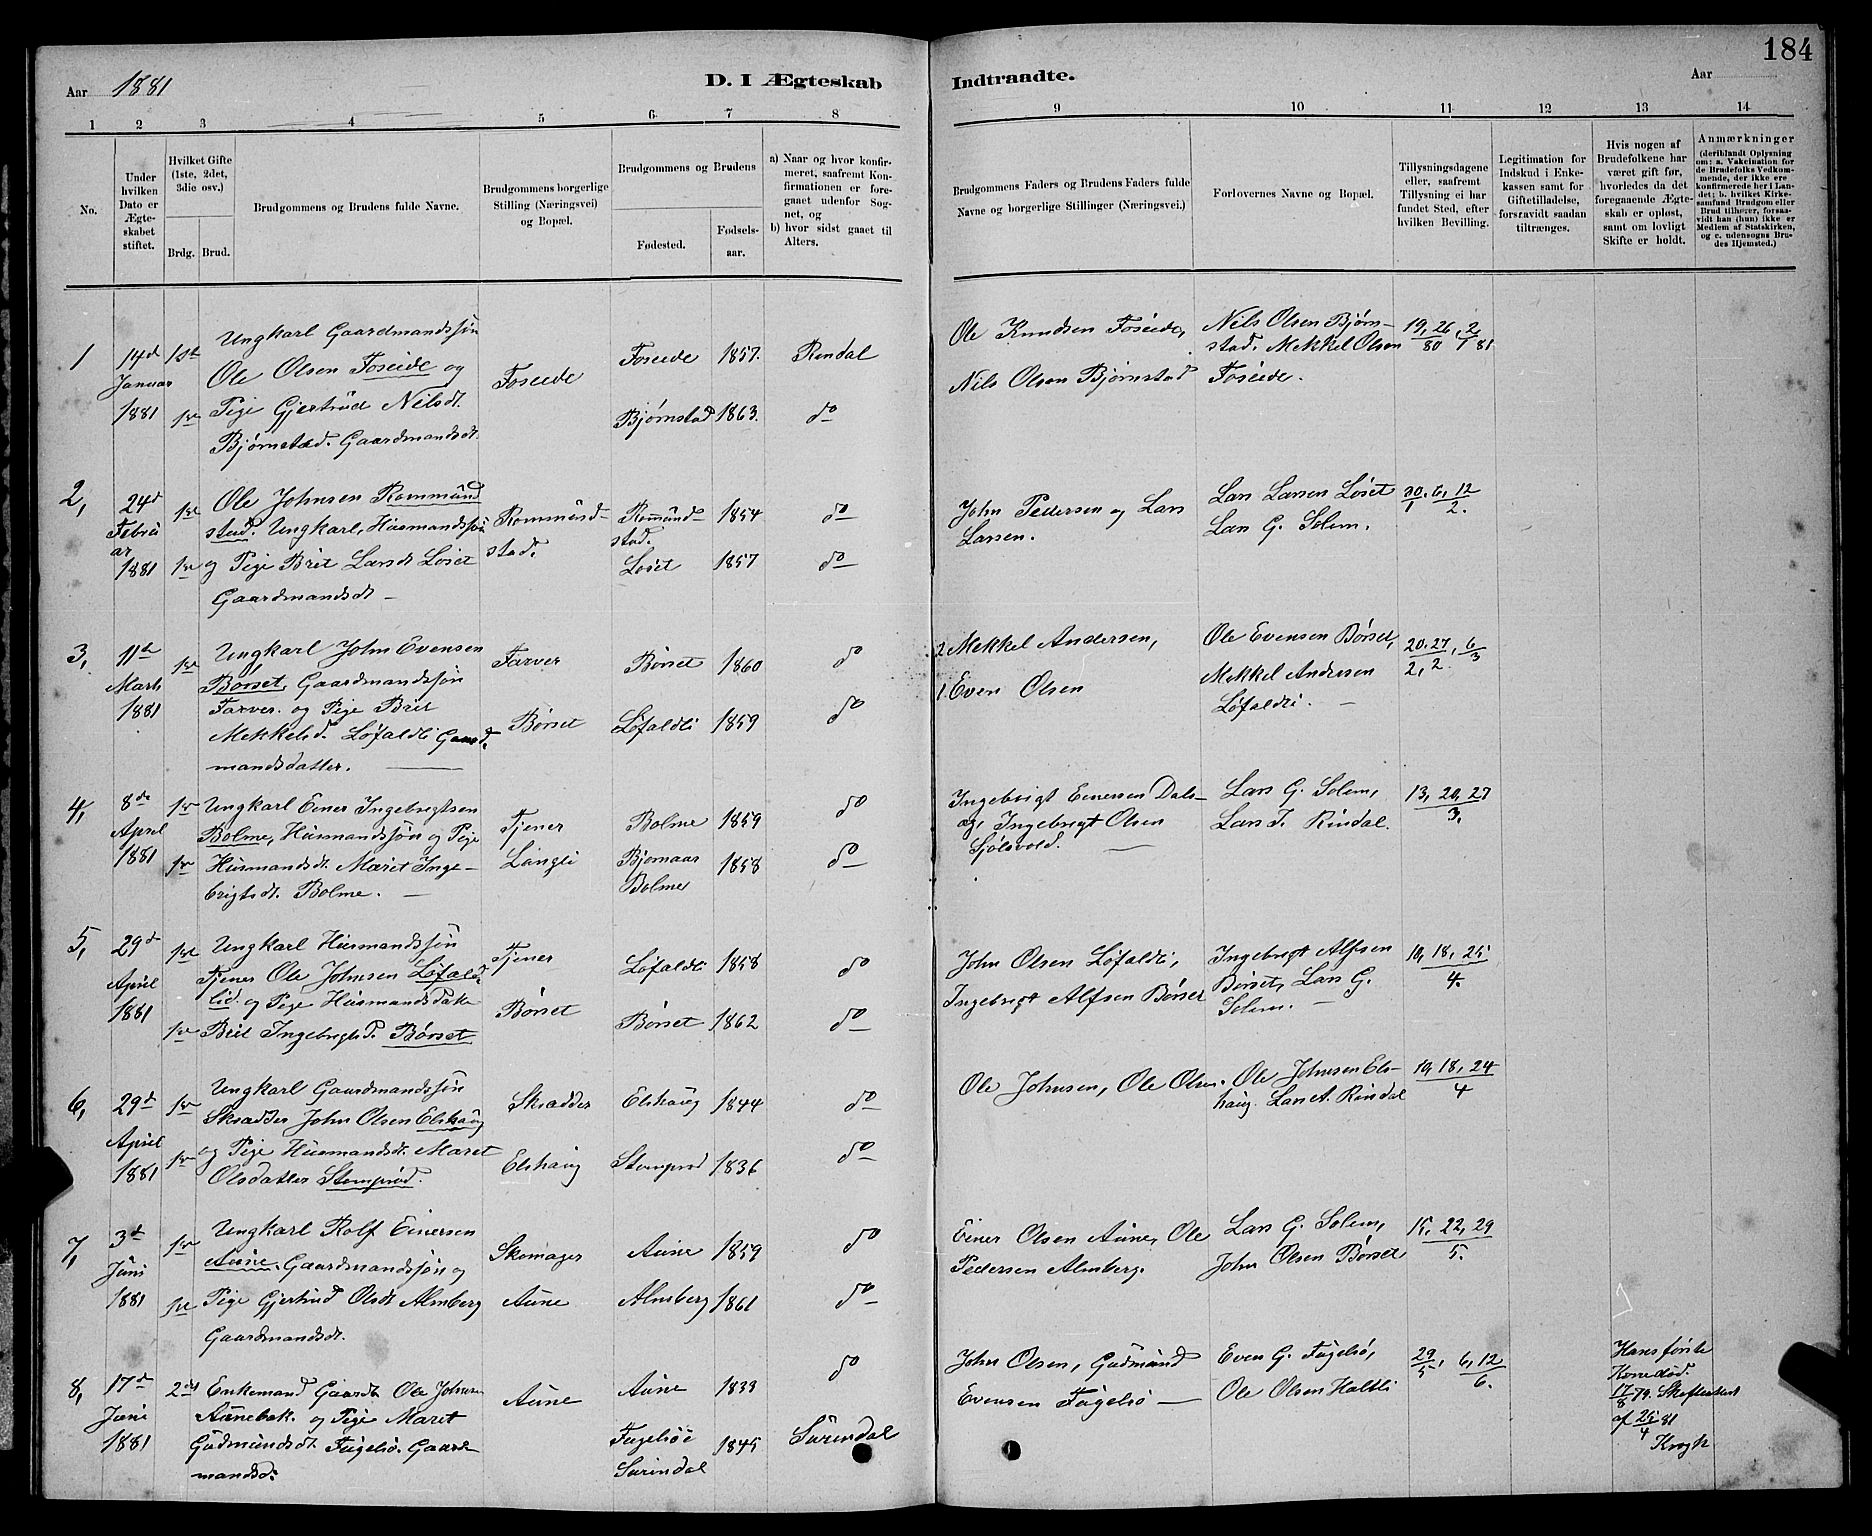 184
Aar 1881
D. I Ægteskab
Indtraadte.
Aar
1 2 3 4 5 6 7 8 9 10 11 12 13 14
No.
Under
hvilken
Dato er
Ægte-
skabet
stiftet.
Hvilket Gifte
(1ste, 2det,
3die osv.)
Brdg. Brud.
Brudgommens og Brudens fulde Navne.
Brudgommens borgerlige
Stilling (Næringsvei)
og Bopæl.
Brudgommens og Brudens
Fødested.
Fødsels-
aar.
a) Naar og hvor konfir-
meret, saafremt Kon-
firmationen er fore-
gaaet udenfor Sog-
net, og
b) hvor sidst gaaet til
Alters.
Brudgommens Faders og Brudens Faders fulde
Navne og borgerlige Stillinger (Næringsvei.)
Forlovernes Navne og Bopæl.
Tillysningsdagene
eller, saafremt
Tillysning ei har
fundet Sted, efter
hvilken Bevilling.
Legitimation for
Indskud i Enke-
kassen samt for
Giftetilladelse,
forsaavidt saadan
tiltrænges.
Hvis nogen af
Brudefolkene har
været gift før,
hvorledes da det
foregaaende Ægte-
skab er opløst,
samt om lovligt
Skifte er holdt.
Anmærkninger
(deriblandt Oplysning
om: a. Vakcination for
de Brudefolks Vedkom-
mende, der ikke ere
konfirmerede her i Lan-
det; b. hvilket Kirke-
samfund Brudgom eller
Brud tilhører, forsaa-
vidt han (hun) ikke er
Medlem af Statskirken,
og c. udensogns Bru-
des Hjemsted.)
1 14d Januar 1881 1st 1ste
Ungkarl Gaardmandssøn
Ole Olsen Foseide og
Pige Gjertrud Nilsdt.
Bjørnstad. Gaardmandsdt.
Foseide
Foseide 1857. Rindal
Bjørnstad 1863. do
Ole Knudsen Foseide,
Nils Olsen Bjørnstad
Nils Olsen Bjørn-
stad. Mekkel Olsen
Foseide.
19, 26, 2
80 1 81
2, 24d Februar 1881 1ste 1ste
Ole Johnsen Rommund
stad. Ungkarl, Husmandssøn
og Pige Brit Larsdt Løset
Gaardmandsdt —
Rommund-
stad.
Romund-
stad. 1854 do
Løset 1857 do
John Pedersen og Lars
Larsen.
Lars Larsen Løset
Lars G. Solem.
30. 6, 12
1 2.
3, 11te Marts 1881 1ste
Ungkarl John Evensen
Børset, Gaardmandssøn
Farver. og Pige Brit
Mekkelsd. Løfaldli Gaard-
mandsdatter.
Farver
Børset
Børset 1860 do
Løfaldli 1859 do
2 Mekkel Andersen,
1 Even Olsen
Ole Evensen Børset,
Mekkel Andersen
Løfaldli. —
20. 27, 6
2, 2. 3
4, 8de April 1881 1ste 1ste
Ungkarl Einer Ingebrigtsen
Bolme, Husmandssøn og Pige
Husmandsdt. Marit Inge-
brigtsdt. Bolme. —
Tjener
Langli
Bolme 1859 do
Bjørnaas
Bolme 1858 do
Ingebrigt Einersen Dals-
og, Ingebrigt Olsen
Sjølsvold. —
Lars G. Solem,
Lars T. Rindal.
13, 20, 27
3.
5, 29d April 1881 1ste 1ste
Ungkarl Husmandssøn
Tjener Ole Johnsen Løfald-
lid. og Pige Husmandsdatt.
Brit Ingebrigtsd. Børset
Tjener
Børset
Løfaldli 1858 do
Børset 1862 do
John Olsen Løfaldli,
Ingebrigt Alfsen Børset
Ingebrigt Alfsen
Børset, Lars G.
Solem. —
10, 18, 25
4.
6, 29d April 1881 1ste 1ste
Ungkarl Gaardmandssøn
Skrædder John Olsen Elshaug
og Pige Husmandsdt. Maret
Olsdatter Stomprød.
Skrædder
Elshaug
Elshaug 1844 do
Stomprød 1836 do
Ole Johnsen, Ole Olsen.
Ole Johnsen Els-
haug. Lars T. Rindal
10, 18, 24
4
7, 3d Juni 1881 1ste 1ste
Ungkarl Rolf Einersen
Aune, Gaardmandssøn og
Pige Gjertrud Olsdt Almberg
Gaardmandsdt.
Skomager
Aune
Aune 1859 do
Almberg 1861 do
Einer Olsen Aune, Ole
Pedersen Almberg.
Lars G. Solem,
John Olsen Børset
15, 22, 29
5.
8, 17d Juni 1881 2det
Enkemand Gaardt. Ole Johns.
Aunebak. og Pige Maret
Gudmundsdt. Fugelsø. Gaard-
mandsd.
Aune
Aune 1839 do
Fugelsøe
Surindal 1845 Surindal
John Olsen, Gudmund
Evensen Fugelsø —
Even G. Fugelsø,
Ole Olsen Haltli
29, 6, 12
5 6.
Hans første
Kone død.
17/8 79. Skifteattest
af 25/4 81
Krogh